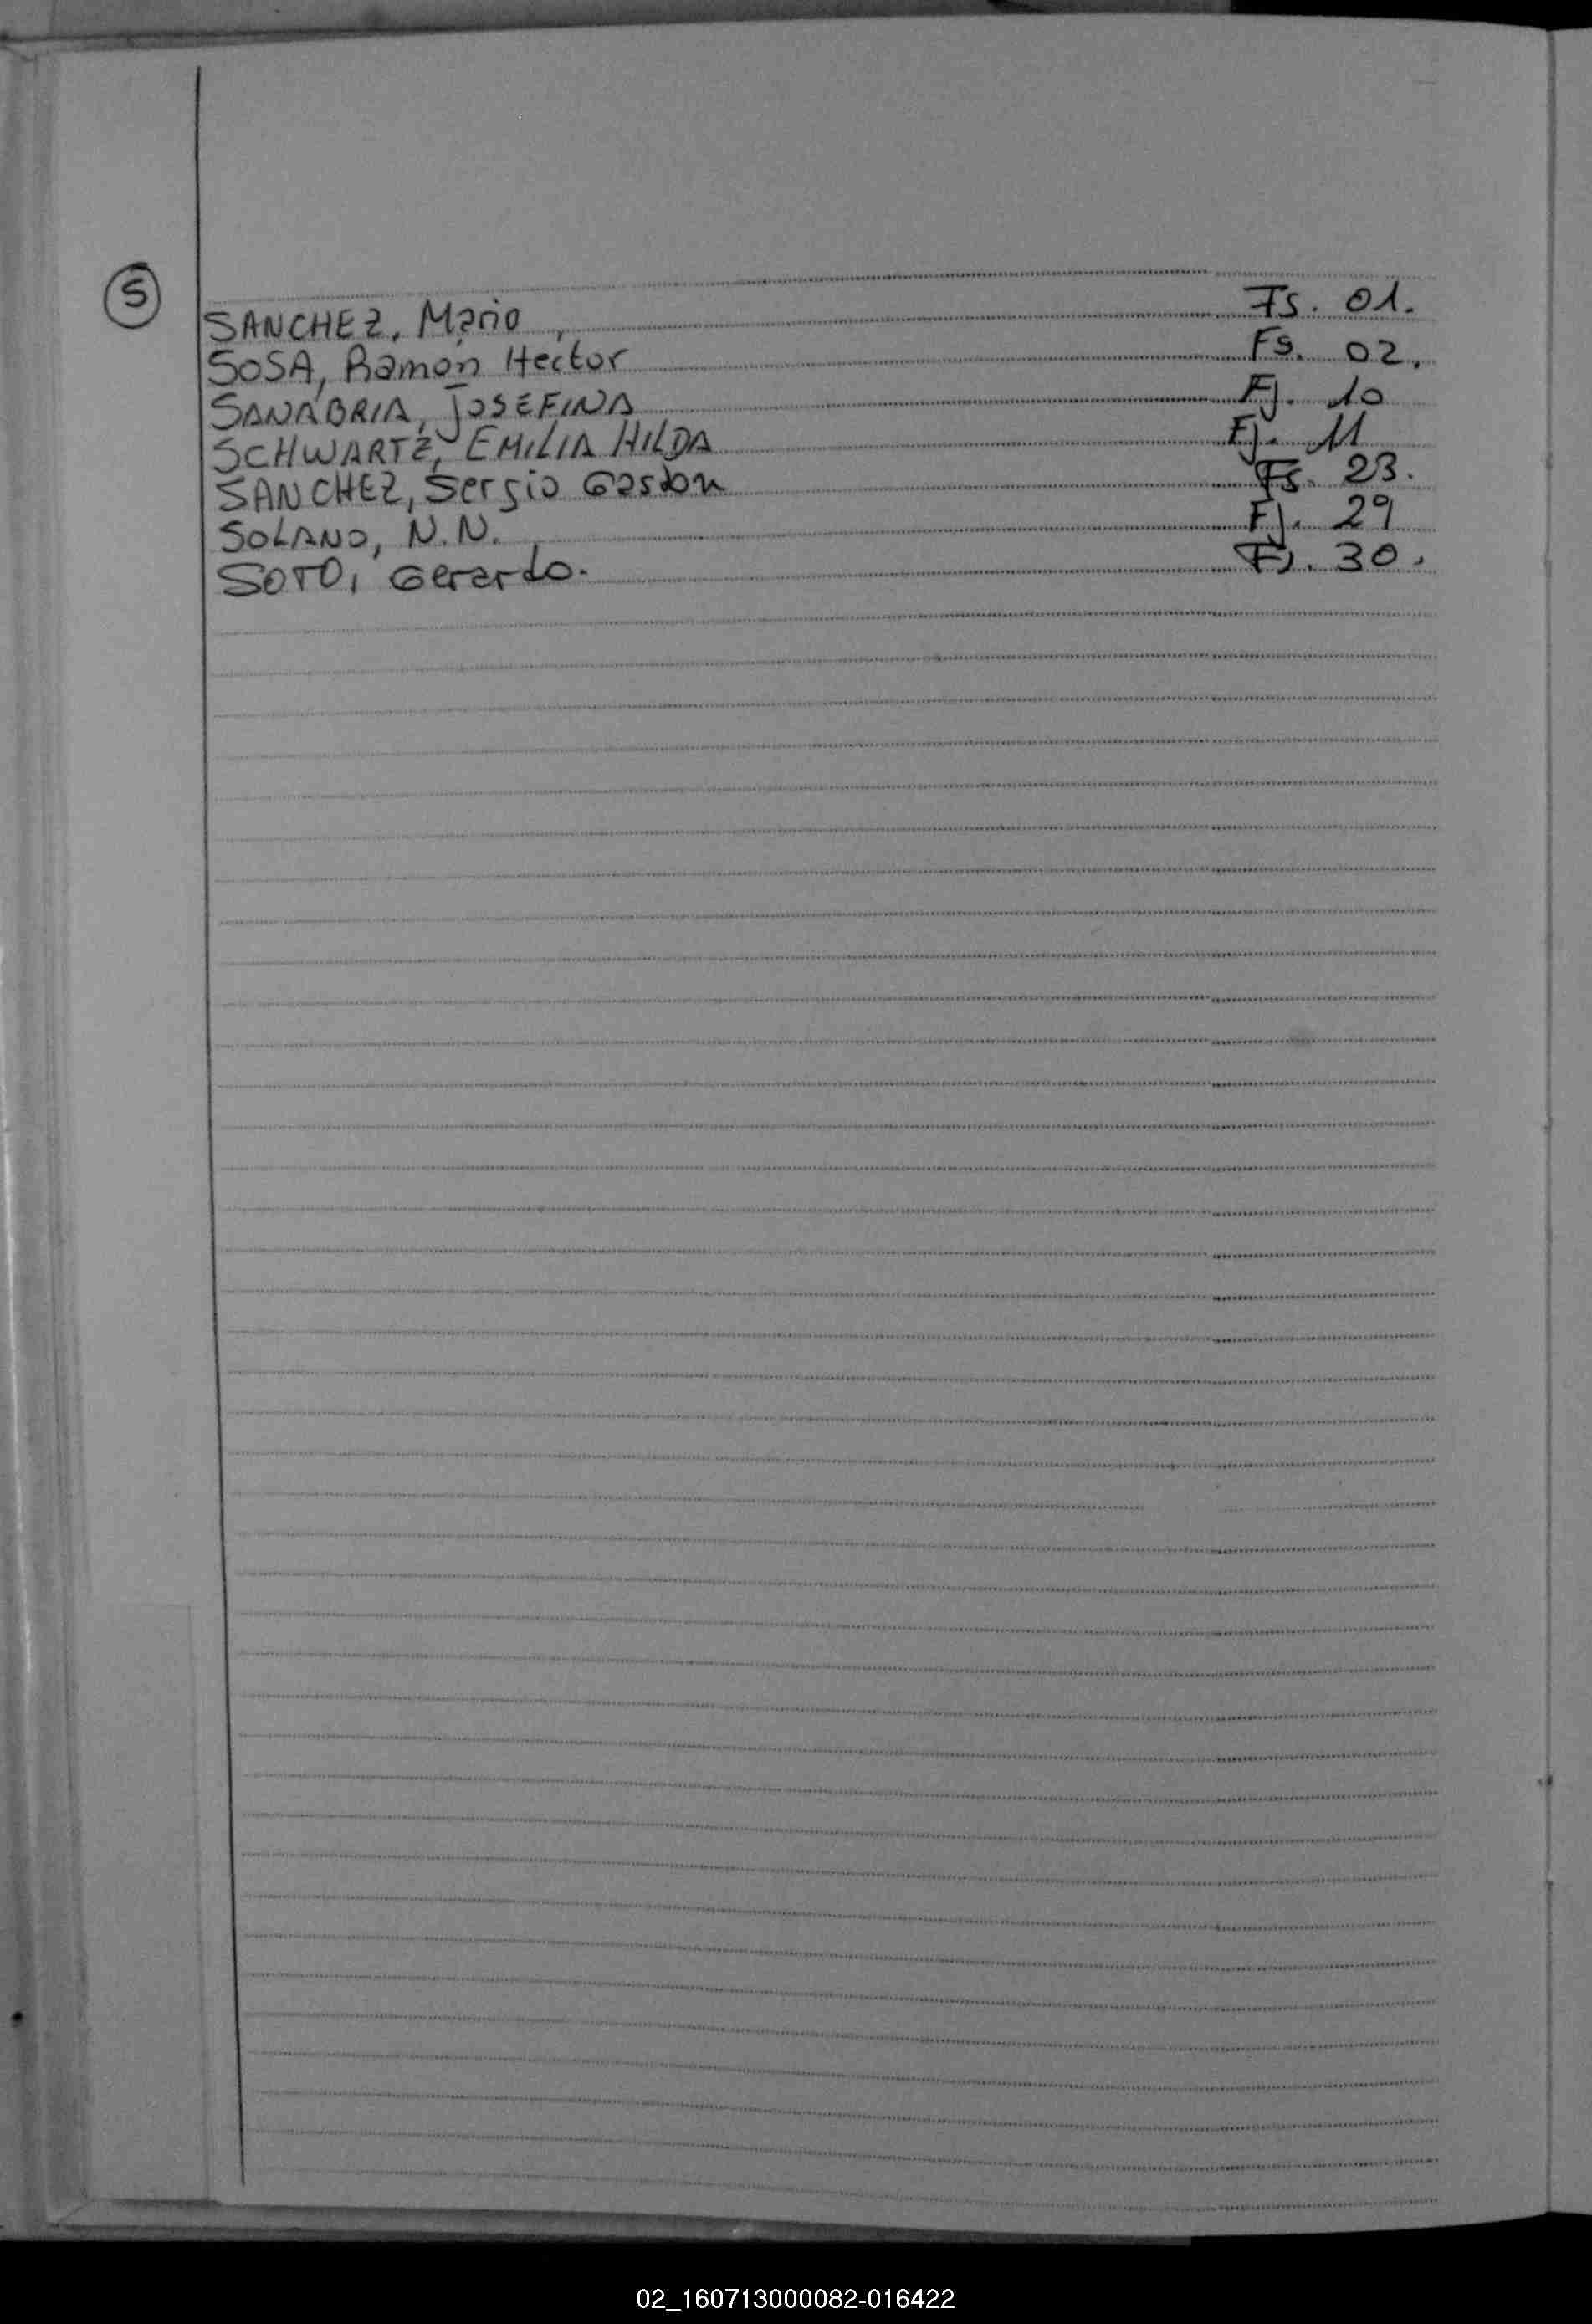 S
SANCHEZ, Mario, Fs. 01.
SOSA, Ramon Hector Fs. 02.
SANABRIA, JOSEFINA Fj. 10
SCHWARTZ, EMILIA HILDA Fj. 11
SANCHEZ, Sergio Gaston Fs. 23.
SOLANO, N.N. Fj. 29
SOTO, Gerardo. Fj. 30.
02_160713000082-016422